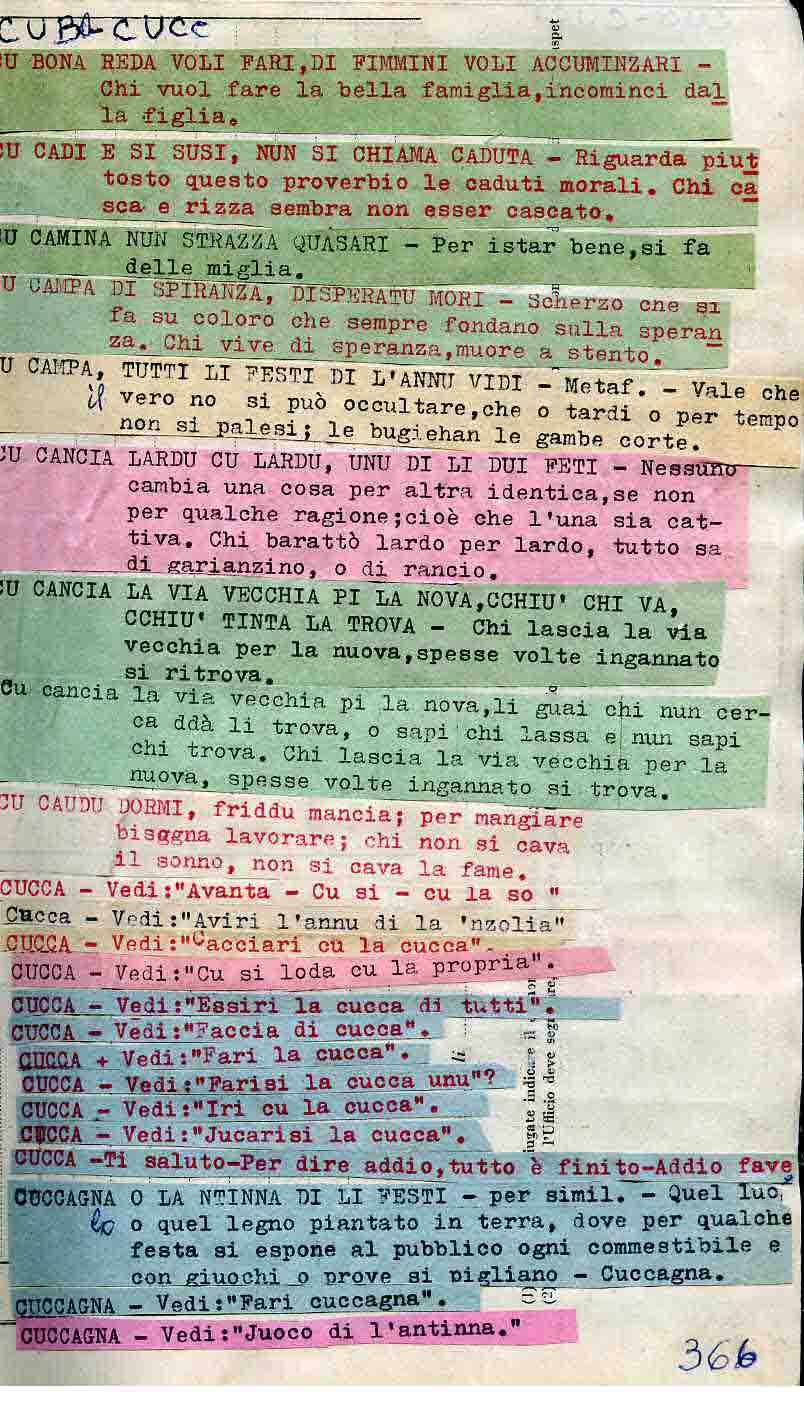 CUBA CUCC
CU BONA REDA VOLI FARI,DI FIMMINI VOLI ACCUMINZARI -
Chi vuol fare la bella famiglia,incominci dal
la figlia.
CU CADI E SI SUSI, NUN SI CHIAMA CADUTA - Riguarda piut
tosto questo proverbio le caduti morali. Chi ca
sca e rizza sembra non esser cascato.
CU CAMINA NUN STRAZZA QUASARI - Per istar bene,si fa
delle miglia.
CU CAMPA DI SPIRANZA, DISPERATU MORI - Scherzo che si
fa su coloro che sempre fondano sulla speran
za. Chi vive di speranza,muore a stento.
CU CAMPA, TUTTI LI FESTI DI L'ANNU VIDI - Metaf. - Vale che
il vero no si può occultare,che o tardi o per tempo
non si palesi; le bugiehan le gambe corte.
CU CANCIA LARDU CU LARDU, UNU DI LI DUI FETI - Nessuno
cambia una cosa per altra identica,se non
per qualche ragione;cioè che l'una sia cat-
tiva. Chi barattò lardo per lardo, tutto sa
di garianzino, o di rancio.
CU CANCIA LA VIA VECCHIA PI LA NOVA,CCHIU' CHI VA,
CCHIU' TINTA LA TROVA - Chi lascia la via
vecchia per la nuova,spesse volte ingannato
si ritrova.
Cu cancia la via vecchia pi la nova,li guai chi nun cer-
ca ddà li trova, o sapi chi lassa e nun sapi
chi trova. Chi lascia la via vecchia per la
nuova, spesse volte ingannato si trova.
CU CAUDU DORMI, friddu mancia; per mangiare
bisggna lavorare; chi non si cava
il sonno, non si cava la fame.
CUCCA - Vedi:"Avanta - Cu si - cu la so "
Cucca - Vedi:"Aviri l'annu di la 'nzolia"
CUCCA - Vedi:"Cacciari cu la cucca".
CUCCA - Vedi:"Cu si loda cu la propria".
CUCCA - Vedi:"Essiri la cucca di tutti".
CUCCA - Vedi:"Faccia di cucca".
CUCCA + Vedi:"Fari la cucca".
CUCCA - Vedi:"Farisi la cucca unu"?
CUCCA - Vedi:"Iri cu la cucca".
CUCCA - Vedi:"Jucarisi la cucca".
CUCCA -Ti saluto-Per dire addio,tutto è finito-Addio fave
CUCCAGNA O LA NTINNA DI LI FESTI - per simil. - Quel luo,
go o quel legno piantato in terra, dove per qualche
festa si espone al pubblico ogni commestibile e
con giuochi o prove si pigliano - Cuccagna.
CUCCAGNA - Vedi:"Fari cuccagna".
CUCCAGNA - Vedi:"Juoco di l'antinna."
366
ispet
li
iugate indicare il
l'Ufficio deve segnare,
(1)
(2)